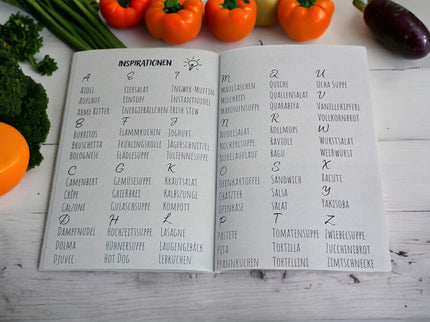 INSPIRATIONEN
A
AIOLI
AUFLAUF
ARME RITTER
B
BURRITOS
BRUSCHETTA
BOLOGNESE
C
CAMENBERT
CRÊPE
CALZONE
D
DAMPFNUDEL
DOLMA
DJUVEC
E
EIERSALAT
EINTOPF
ENERGIEBÄLLCHEN
F
FLAMMKUCHEN
FRÜHLINGSROLLE
FLÄDLESUPPE
G
GEMÜSESUPPE
GRIEẞBREI
GULASCHSUPPE
H
HOCHZEITSSUPPE
HÜHNERSUPPE
HOT DOG
I
INGWER-MUFFIN
INSTANTNUDEL
IRISH STEW
J
JOGHURT
JÄGERSCHNITZEL
JULIENNESUPPE
K
KRAUTSALAT
KALBSZUNGE
KOMPOTT
L
LASAGNE
LAUGENGEBÄCK
LEBKUCHEN
M
MAULTASCHEN
MILCHREIS
MARONENSUPPE
N
NUDELSALAT
NOCKERLSUPPE
NUDELAUFLAUF
O
OFENKARTOFFEL
OBATZTER
OFENKÄSE
P
PASTETE
PITA
PFANNKUCHEN
Q
QUICHE
QUALLENSALAT
QUARABIYA
R
ROLLMOPS
RAVIOLI
RAGU
S
SANDWICH
SALSA
SALAT
T
TOMATENSUPPE
TORTILLA
TORTELLINI
U
UCHA SUPPE
V
VANILLEKIPFERL
VOLLKORNBROT
W
WURSTSALAT
WEIẞWURST
X
XACUTI
Y
YAKISOBA
Z
ZWIEBELSUPPE
ZUCCHINIBROT
ZIMTSCHNECKE